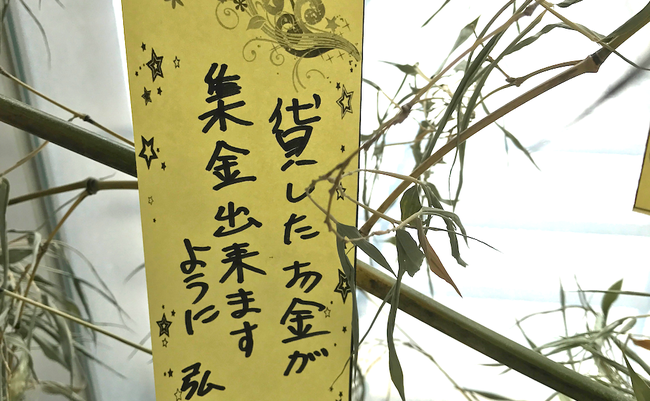 貸したお金が
集金出来ます
ように
弘